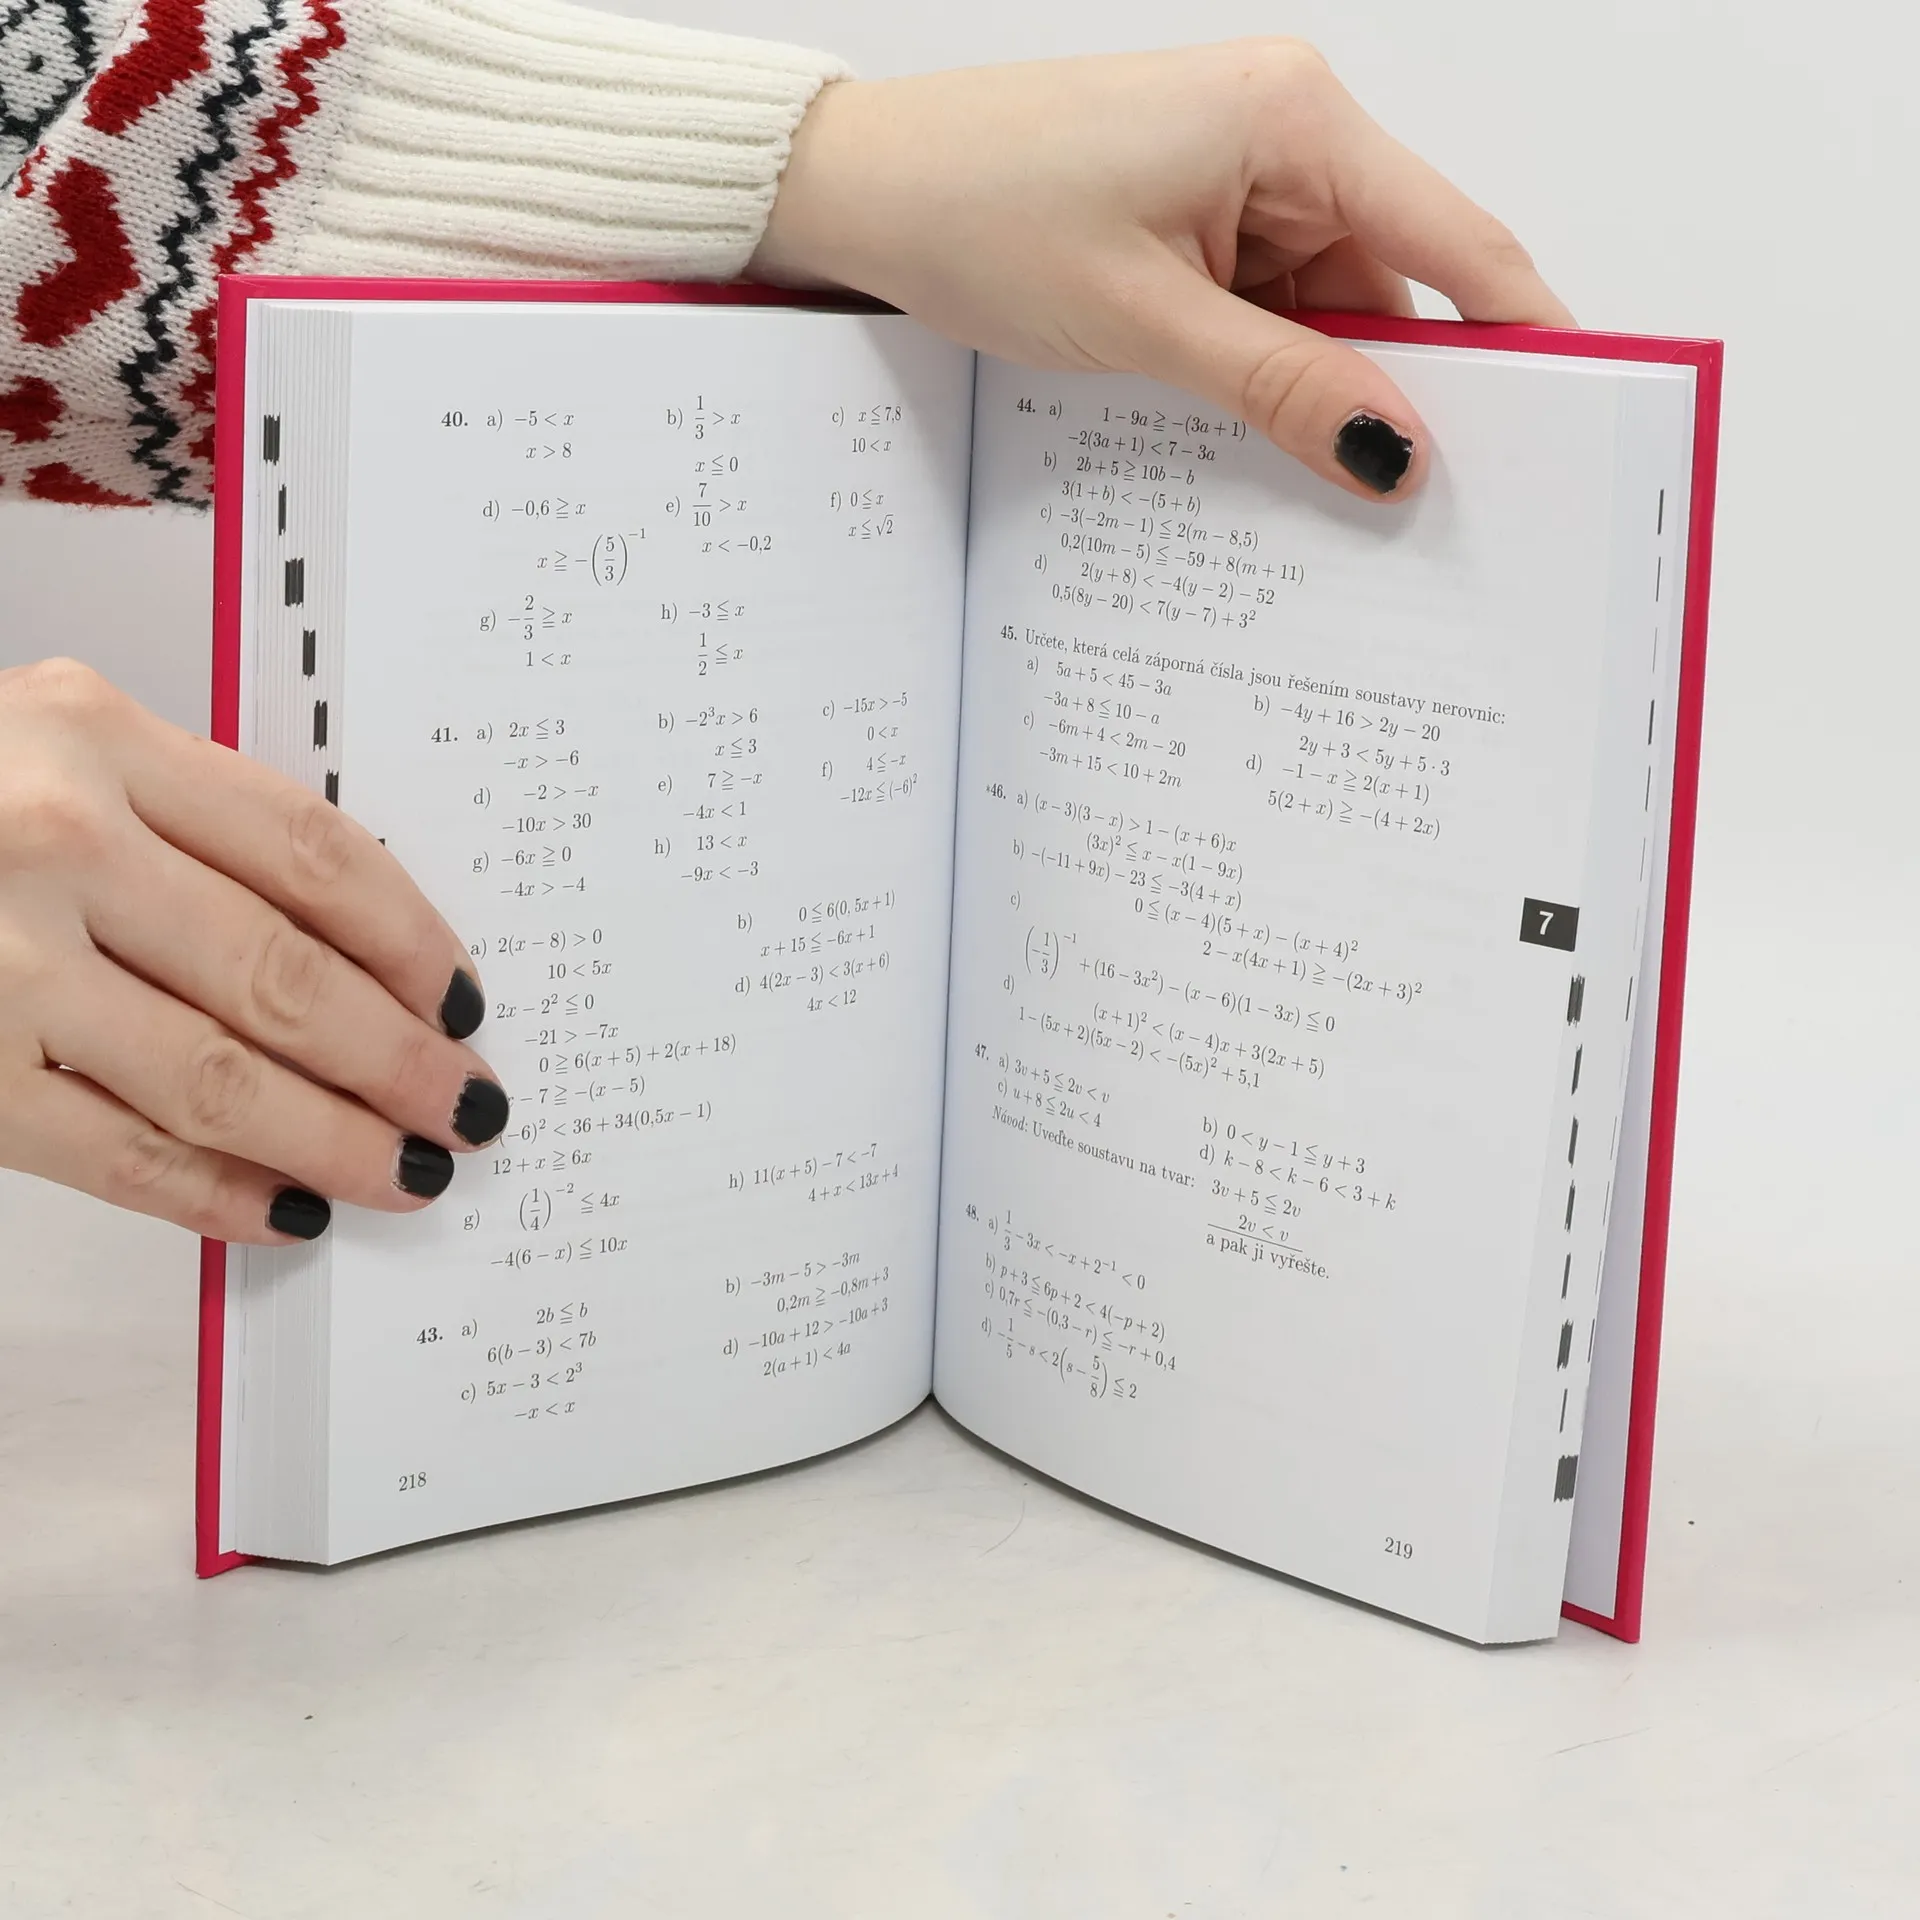 40. a) −5 < x b) 1/3 > x c) x ≦ 7,8
x > 8 x ≦ 0 10 < x
d) −0,6 ≧ x e) 7/10 > x f) 0 ≦ x
x ≧ −(5/3)⁻¹ x < −0,2 x ≦ √2
g) −2/3 ≧ x h) −3 ≦ x
1 < x 1/2 ≦ x
41. a) 2x ≦ 3 b) −2³x > 6 c) −15x > −5
−x > −6 x ≦ 3 0 < x
d) −2 > −x e) 7 ≧ −x f) 4 ≦ −x
−10x > 30 −4x < 1 −12x ≦ (−6)²
g) −6x ≧ 0 h) 13 < x
−4x > −4 −9x < −3
a) 2(x − 8) > 0 b) 0 ≦ 6(0, 5x + 1)
10 < 5x x + 15 ≦ −6x + 1
2x − 2² ≦ 0 d) 4(2x − 3) < 3(x + 6)
−21 > −7x 4x < 12
0 ≧ 6(x + 5) + 2(x + 18)
− 7 ≧ −(x − 5)
(−6)² < 36 + 34(0,5x − 1)
12 + x ≧ 6x
g) (1/4)⁻² ≦ 4x h) 11(x + 5) − 7 < −7
−4(6 − x) ≦ 10x 4 + x < 13x + 4
43. a) 2b ≦ b b) −3m − 5 > −3m
6(b − 3) < 7b 0,2m ≧ −0,8m + 3
c) 5x − 3 < 2³ d) −10a + 12 > −10a + 3
−x < x 2(a + 1) < 4a
218
44. a) 1 − 9a ≧ −(3a + 1)
−2(3a + 1) < 7 − 3a
b) 2b + 5 ≧ 10b − b
3(1 + b) < −(5 + b)
c) −3(−2m − 1) ≦ 2(m − 8,5)
0,2(10m − 5) ≦ −59 + 8(m + 11)
d) 2(y + 8) < −4(y − 2) − 52
0,5(8y − 20) < 7(y − 7) + 3²
45. Určete, která celá záporná čísla jsou řešením soustavy nerovnic:
a) 5a + 5 < 45 − 3a b) −4y + 16 > 2y − 20
−3a + 8 ≦ 10 − a 2y + 3 < 5y + 5 · 3
c) −6m + 4 < 2m − 20 d) −1 − x ≧ 2(x + 1)
−3m + 15 < 10 + 2m 5(2 + x) ≧ −(4 + 2x)
*46. a) (x − 3)(3 − x) > 1 − (x + 6)x
(3x)² ≦ x − x(1 − 9x)
b) −(−11 + 9x) − 23 ≦ −3(4 + x)
0 ≦ (x − 4)(5 + x) − (x + 4)²
c) 2 − x(4x + 1) ≧ −(2x + 3)²
(−1/3)⁻¹ + (16 − 3x²) − (x − 6)(1 − 3x) ≦ 0
d) (x + 1)² < (x − 4)x + 3(2x + 5)
1 − (5x + 2)(5x − 2) < −(5x)² + 5,1
47. a) 3v + 5 ≦ 2v < v b) 0 < y − 1 ≦ y + 3
c) u + 8 ≦ 2u < 4 d) k − 8 < k − 6 < 3 + k
Návod: Uveďte soustavu na tvar: 3v + 5 ≦ 2v
2v < v
a pak ji vyřešte.
48. a) 1/3 − 3x < −x + 2⁻¹ < 0
b) p + 3 ≦ 6p + 2 < 4(−p + 2)
c) 0,7r ≦ −(0,3 − r) ≦ −r + 0,4
d) −1/5 − s < 2(s − 5/8) ≦ 2
7
219